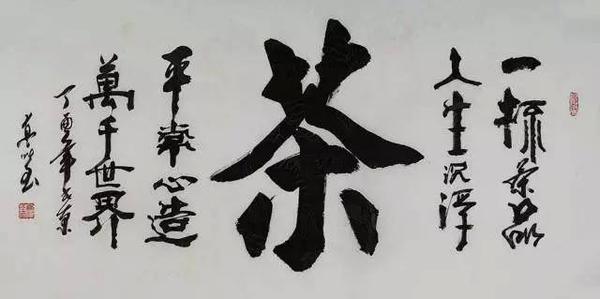 一杯茶品
人生沉浮
茶
平常心造
萬千世界
丁酉年